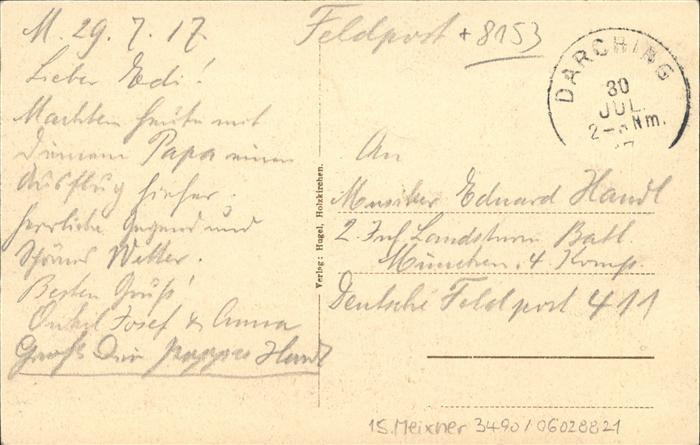 M. 29. 7. 17.
Lieber Edi!
Machten heute mit
Deinem Papa einen
Ausflug hieher.
Herrliche Gegend und
Schönes Wetter.
Besten Gruß!
Onkel Josef & Anna
Gruß Dein Pappa Handl
Feldpost + 8153
DARCHING
30
JUL.
2- Nm.
An
Musiker Eduard Handl
2. Inf Landsturm Batl.
München. 4. Komp
Deutsche Feldpost 411
Verlag: Hugel, Holzkirchen.
15. Meixner 3490/06028821